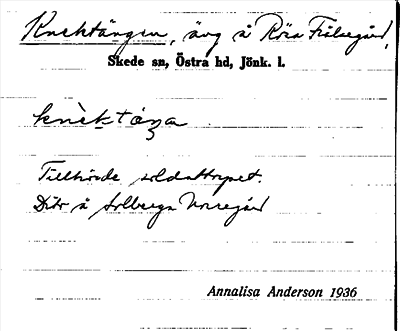 Knektängen, äng å Röra Frälsegård,
Skede sn, Östra hd, Jönk. l.
knèktǎŋa
Tillhörde soldattorpet.
Dito å Solberga Norregård
Annalisa Anderson 1936